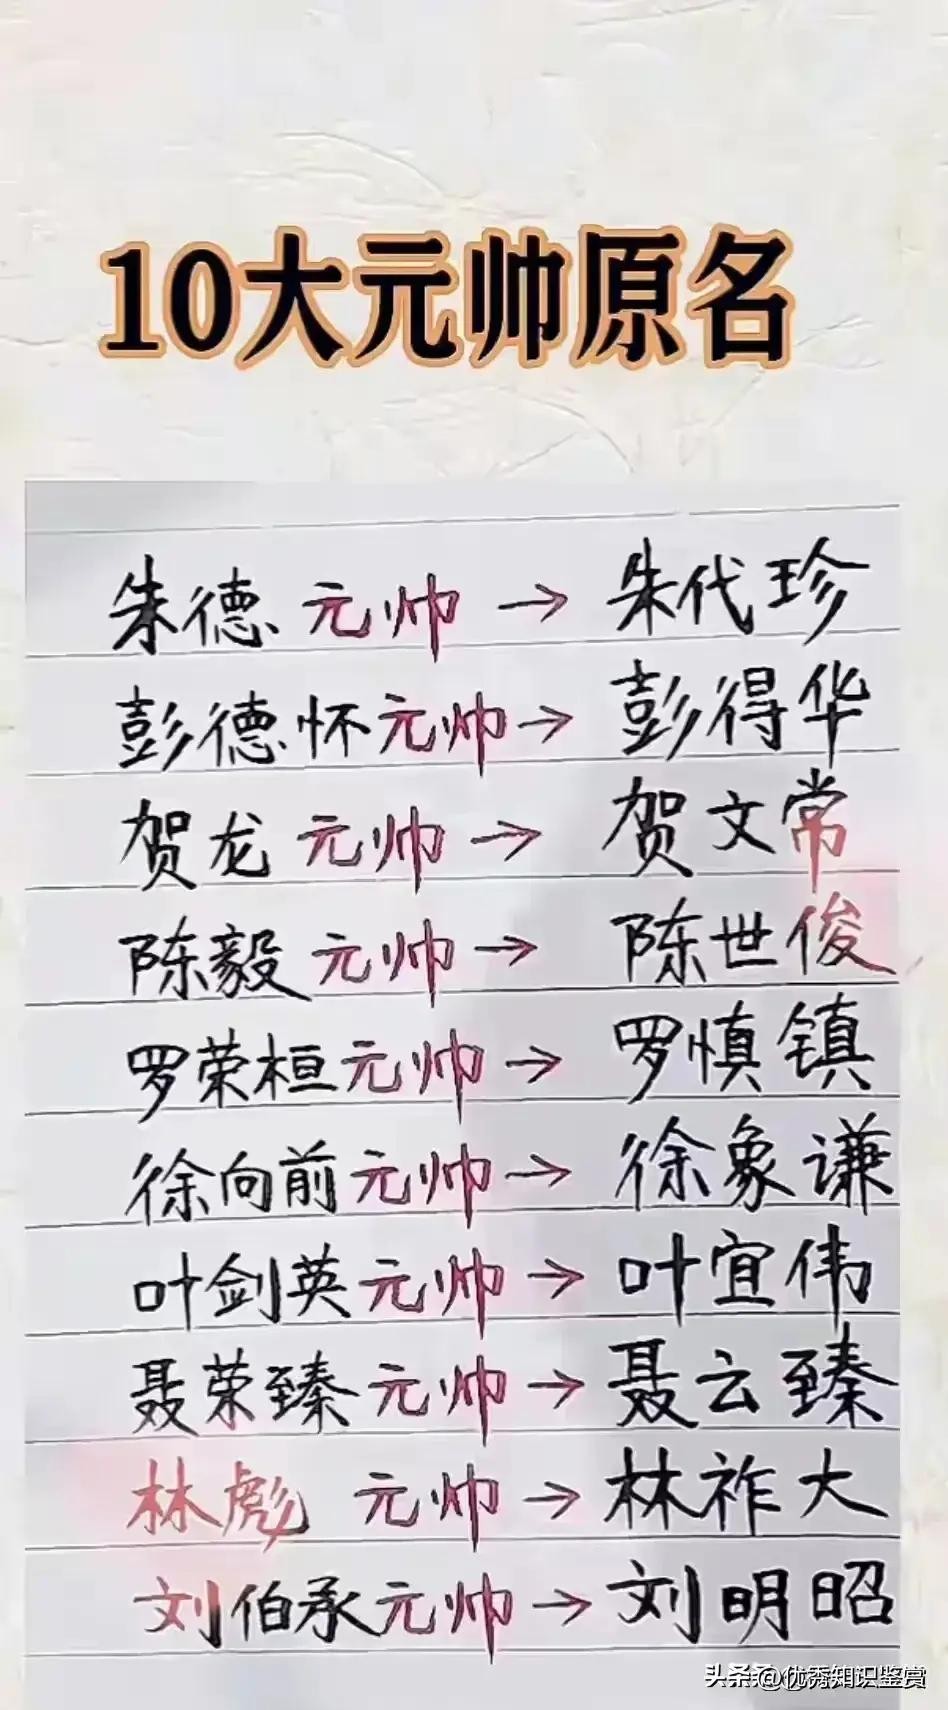 10大元帅原名
朱德元帅→朱代珍
彭德怀元帅→彭得华
贺龙元帅→贺文常
陈毅元帅→陈世俊
罗荣桓元帅→罗慎镇
徐向前元帅→徐象谦
叶剑英元帅→叶宜伟
聂荣臻元帅→聂云臻
林彪元帅→林祚大
刘伯承元帅→刘明昭
头条 @优秀知识鉴赏